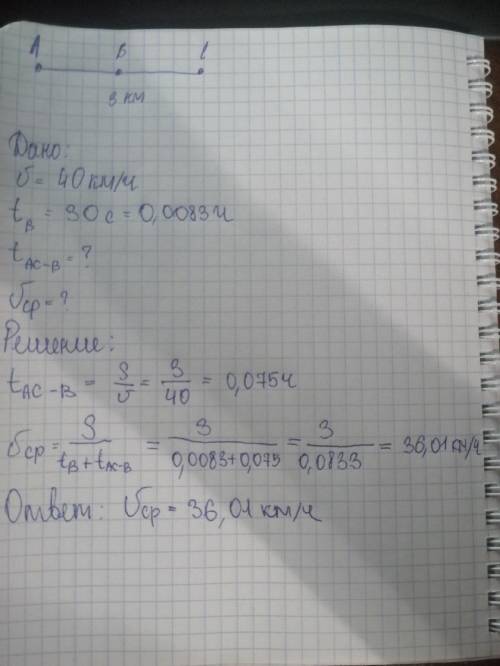 A B C
3 км
Дано:
υ = 40 км/ч
t_B = 30 с = 0,0083 ч
t_AC-B = ?
υср = ?
Решение:
t_AC-B = S/υ = 3/40 = 0,075 ч
υср = S/(t_B + t_AC-B) = 3/(0,0083+0,075) = 3/0,0833 = 36,01 км/ч
Ответ: υср = 36,01 км/ч